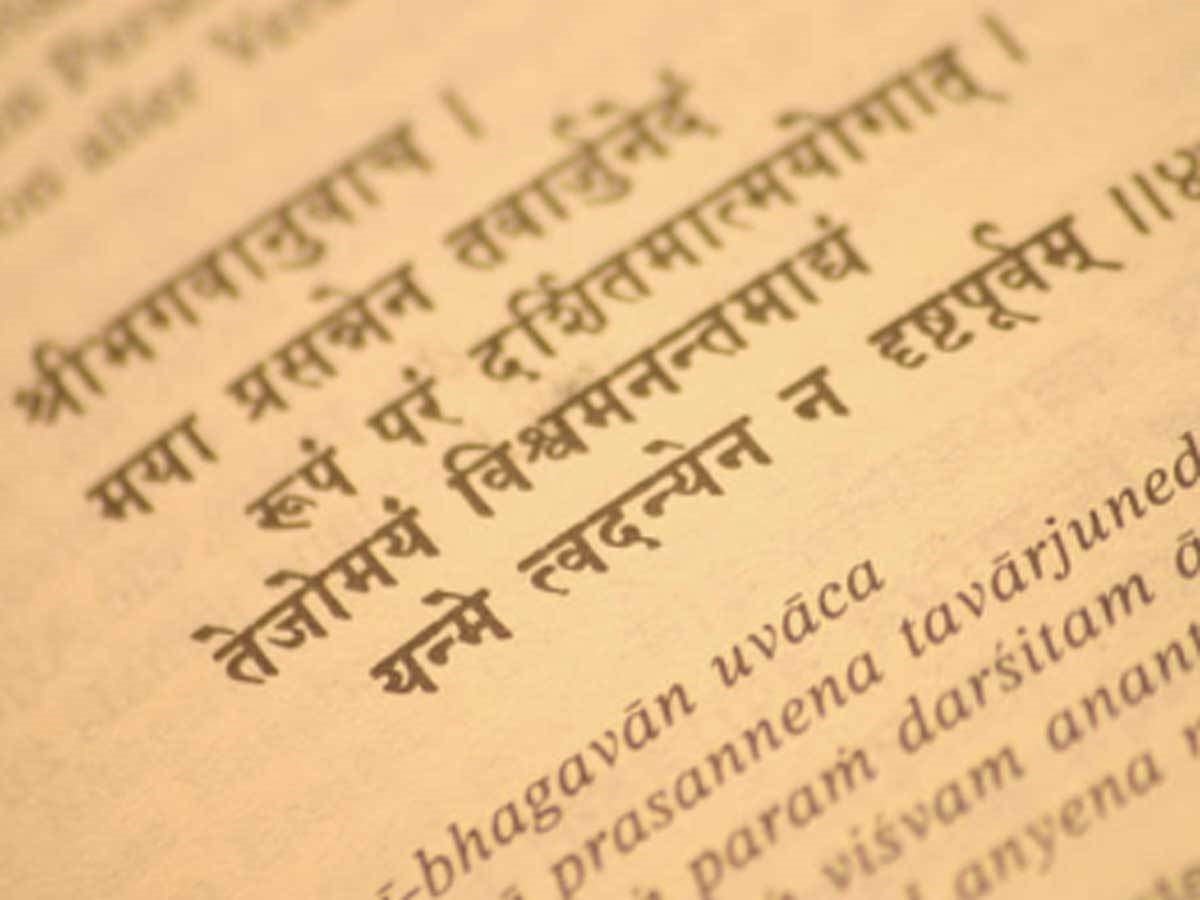 on aller
श्रीभगवानुवाच ।
मया प्रसन्नेन तवार्जुनेदं
रूपं परं दर्शितमात्मयोगात् ।
तेजोमयं विश्वमनन्तमाद्यं
यन्मे त्वदन्येन न दृष्टपूर्वम् ॥४
ī-bhagavān uvāca
prasannena tavārjuned
paraṁ darśitam ā
viśvam anant
anyena n